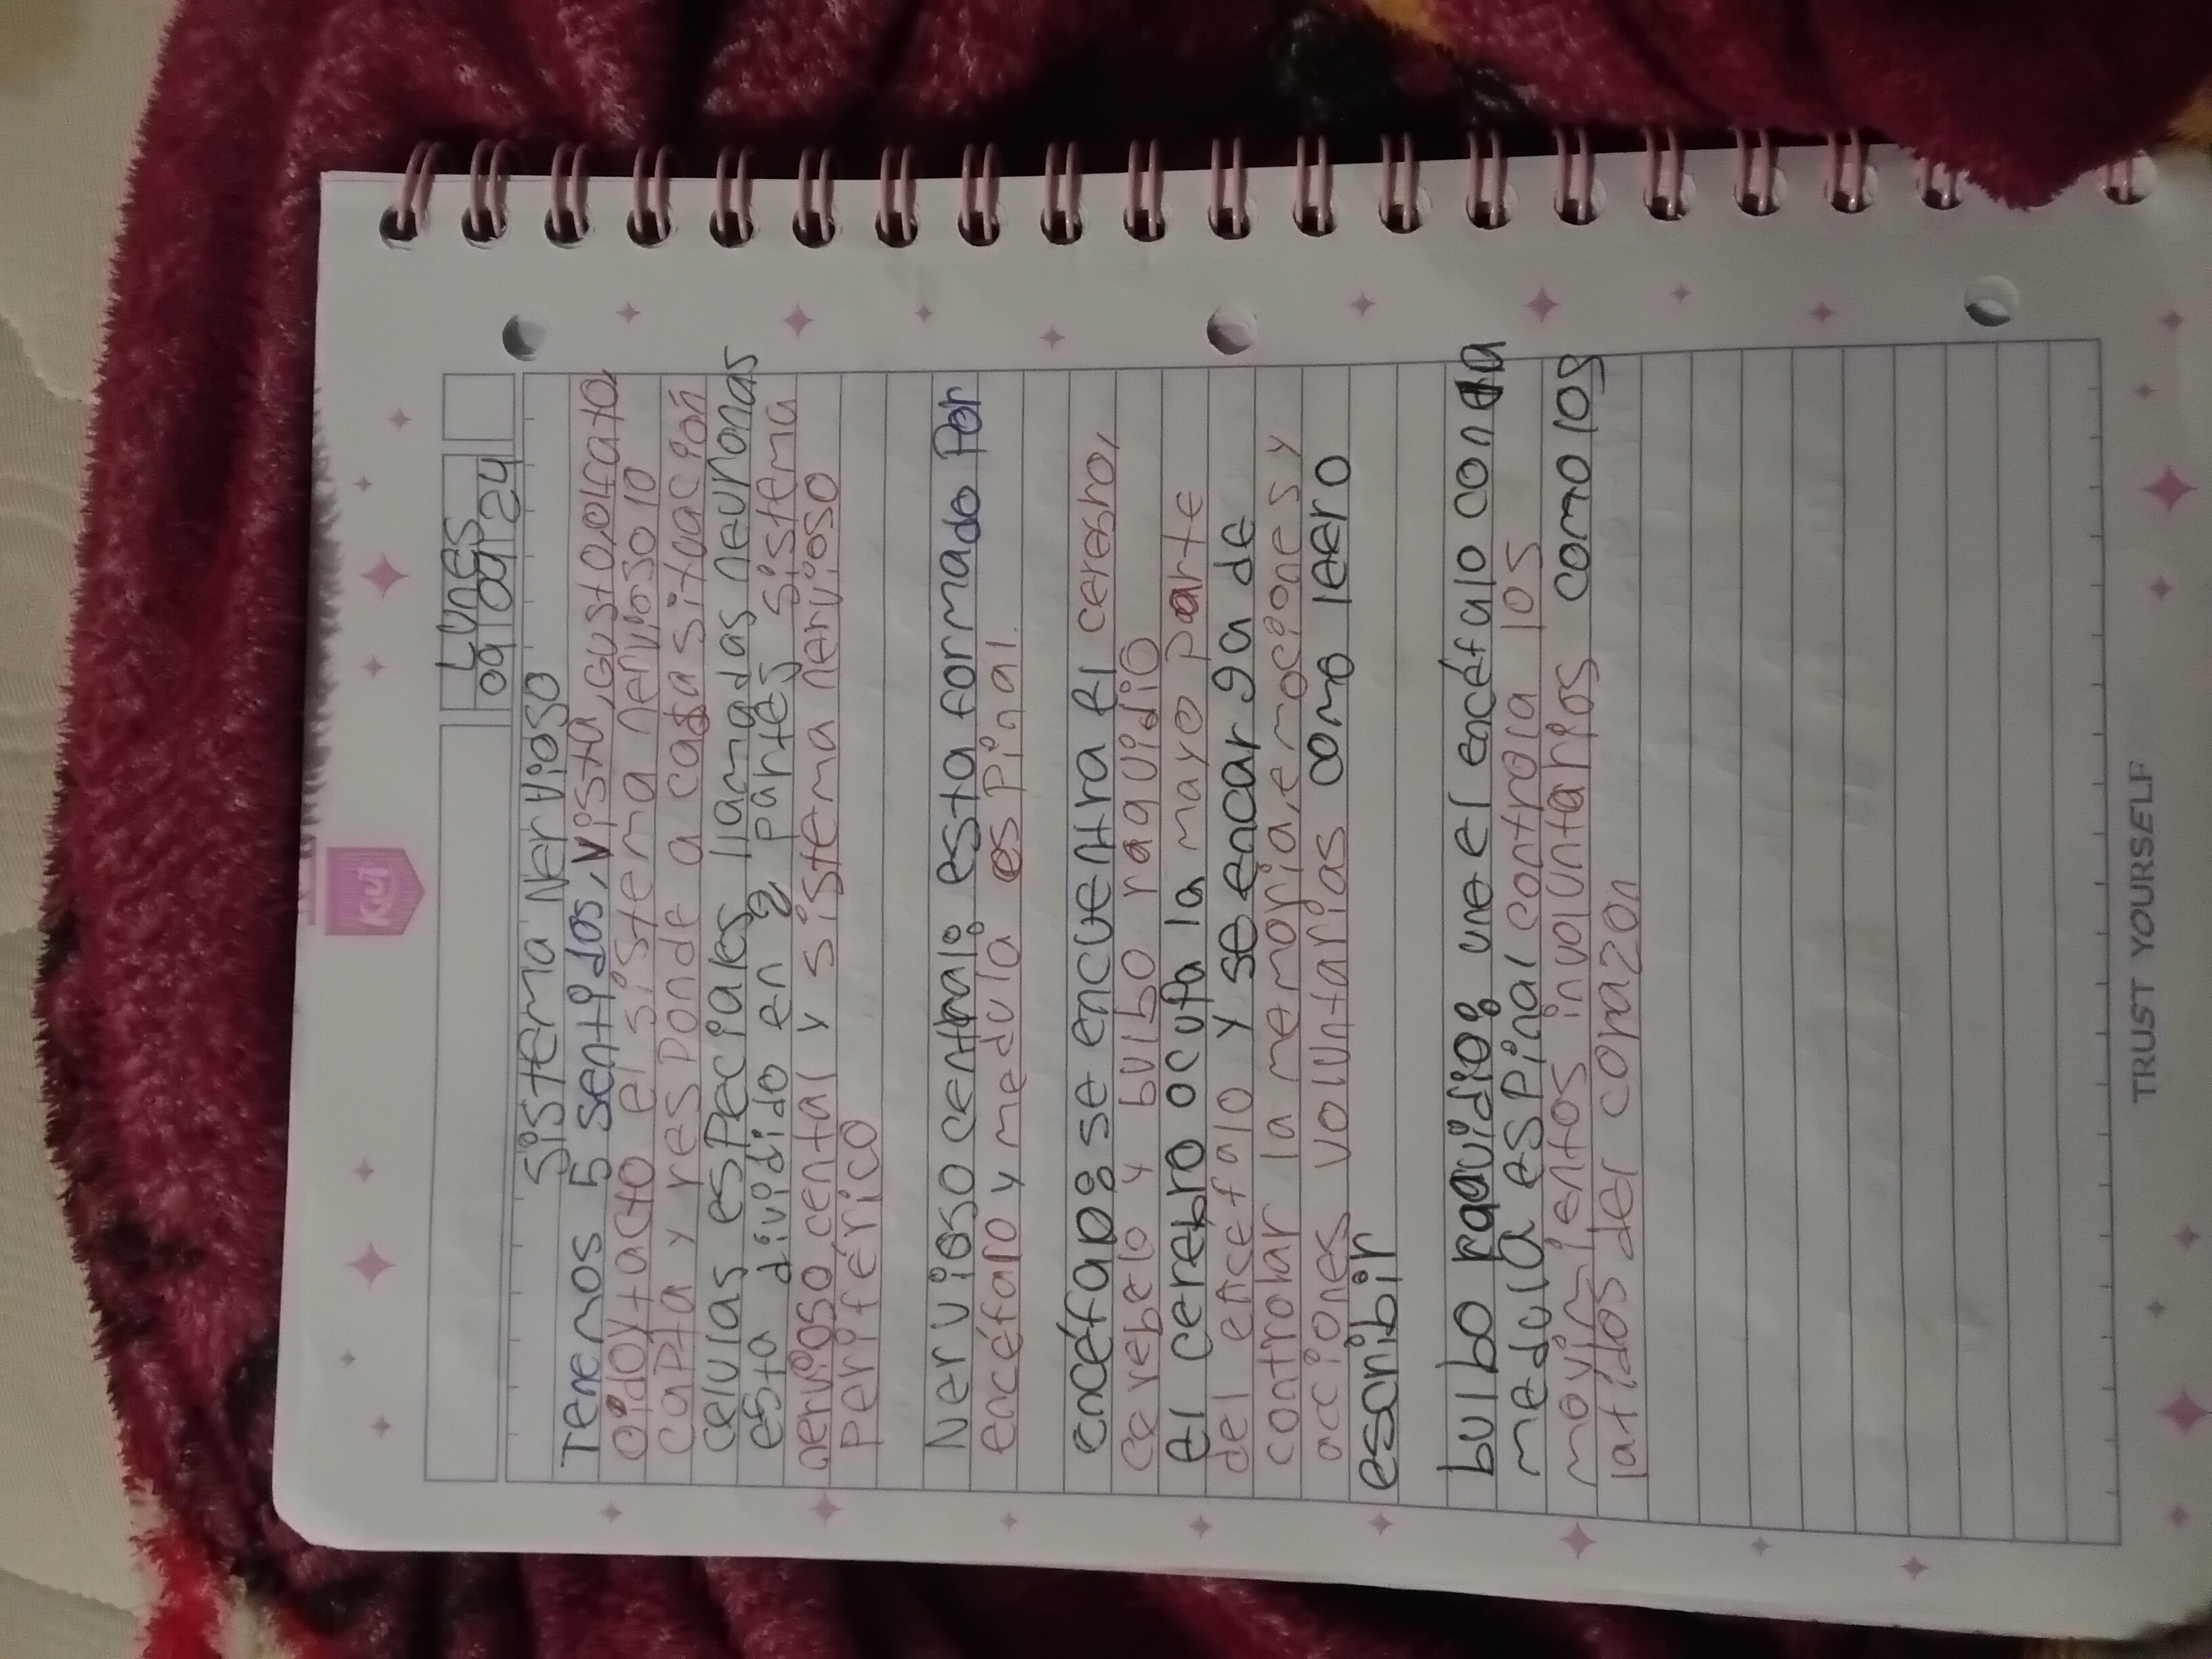 Lunes
09/09/24
Sistema Nervioso
Tenemos 5 sentidos, vista, gusto, olfato
oido y tacto el sistema nervioso lo
capta y responde a cada situación
celulas especiales llamadas neuronas
esta dividido en 2 partes sistema
nervioso cental y sistema nervioso
periférico
Nervioso central: esta formado por
encéfalo y medula espinal.
encéfalo: se encuentra el cerebro,
cerebelo y bulbo raquidio
El cerebro ocupa la mayo parte
del encefalo y se encarga de
controlar la memoria, emociones y
acciones voluntarias como leer o
escribir
bulbo raquidio: une el encéfalo con la
medula espinal controla los
movimientos involuntarios como los
latidos del corazon
Kut
TRUST YOURSELF